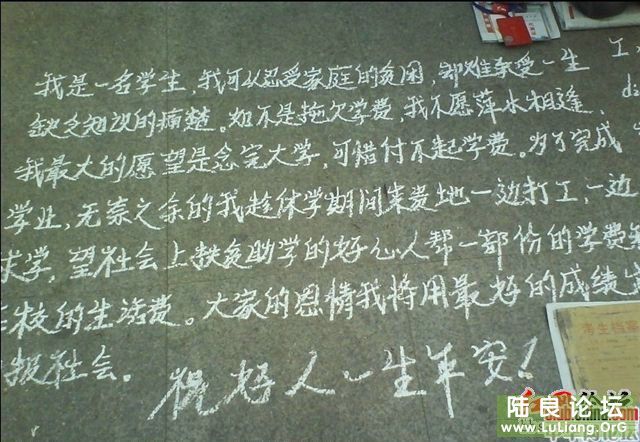 我是一名学生,我可以忍受家庭的贫困,却难承受一生 工
缺乏知识的痛楚。如不是拖欠学费,我不愿萍水相逢,
我最大的愿望是念完大学,可惜付不起学费。为了完成
学业,无奈之余的我趁休学期间来贵地一边打工,一边
求学,望社会上扶贫助学的好心人帮一部份的学费和
在校的生活费。大家的恩情我将用最好的成绩
报社会。
祝好人一生平安!
考生档案
陆良论坛
www.LuLiang.OrG